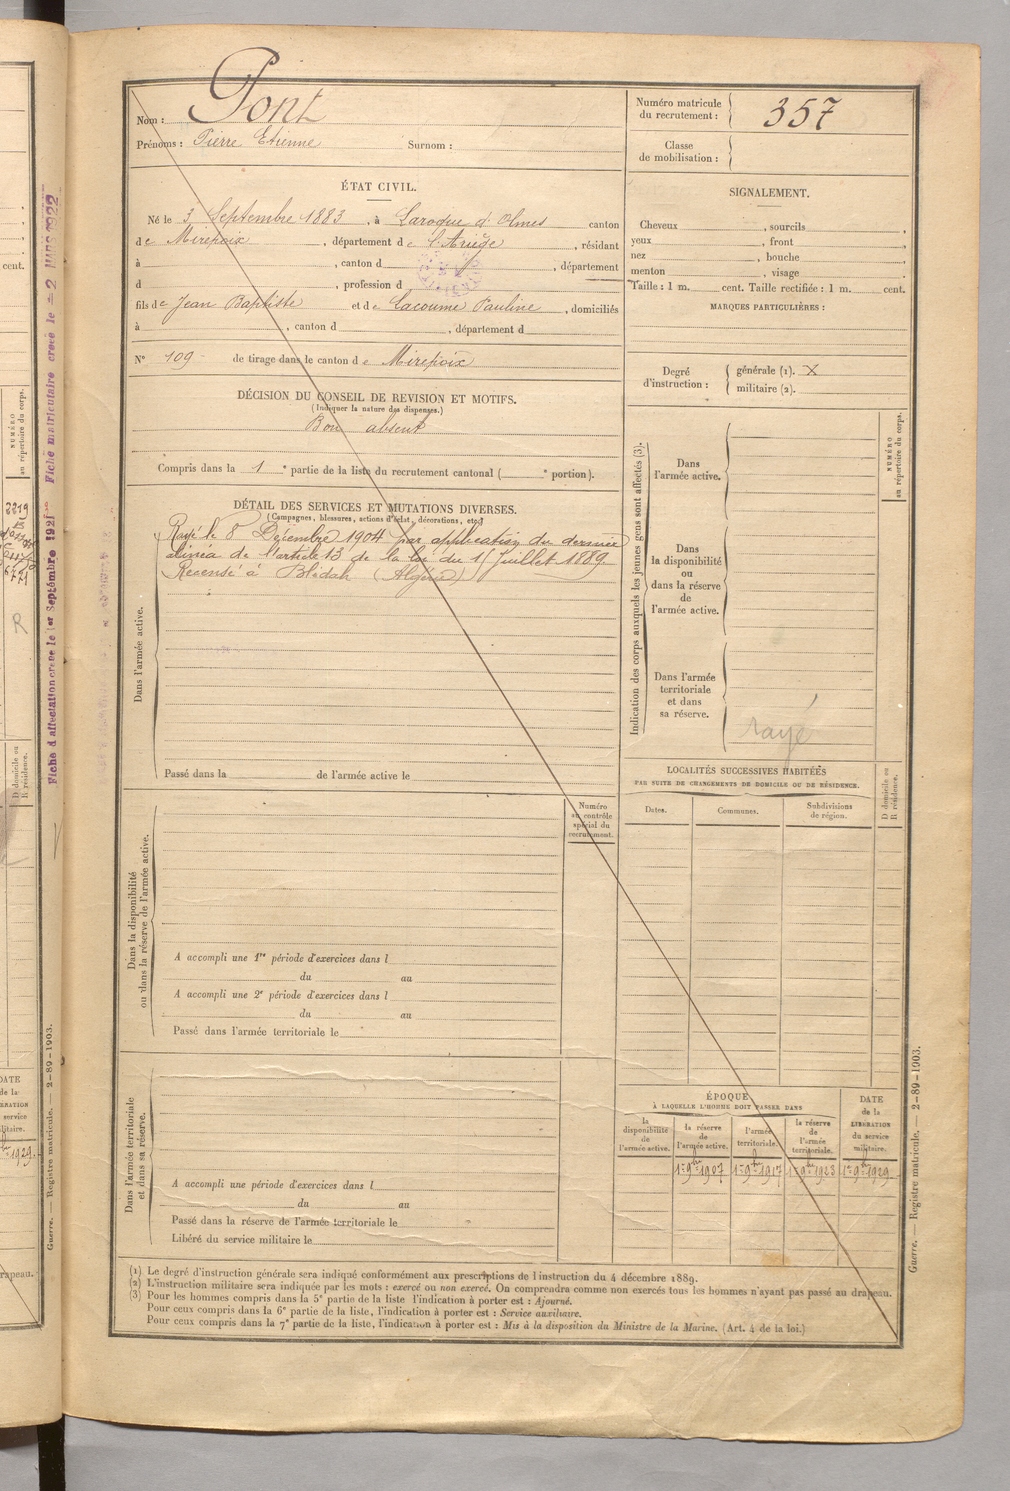 Nom : Pont
Prénoms : Pierre Etienne Surnom :
Numéro matricule
du recrutement : 357
Classe
de mobilisation :
ÉTAT CIVIL.
Né le 3 Septembre 1883, à Laroque d'Olmes canton
de Mirepoix, département de l'Ariège, résidant
à , canton d , département
d , profession d
fils de Jean Baptiste et de Lacoume Pauline, domiciliés
à , canton d , département d
N° 109 de tirage dans le canton de Mirepoix
SIGNALEMENT.
Cheveux , sourcils ,
yeux , front ,
nez , bouche ,
menton , visage .
Taille : 1 m. cent. Taille rectifiée : 1 m. cent.
MARQUES PARTICULIÈRES :
Degré
d'instruction :
générale (1). X
militaire (2).
DÉCISION DU CONSEIL DE REVISION ET MOTIFS.
(Indiquer la nature des dispenses.)
Bon absent
Compris dans la 1 e partie de la liste du recrutement cantonal ( e portion).
DÉTAIL DES SERVICES ET MUTATIONS DIVERSES.
(Campagnes, blessures, actions d'éclat, décorations, etc.)
Rayé le 8 Décembre 1904 par application du dernier
alinéa de l'article 13 de la loi du 15 Juillet 1889.
Recensé à Blidah (Algérie)
Dans l'armée active.
Passé dans la de l'armée active le
Indication des corps auxquels les jeunes gens sont affectés (3).
Dans
l'armée active.
Dans
la disponibilité
ou
dans la réserve
de
l'armée active.
Dans l'armée
territoriale
et dans
sa réserve.
rayé
NUMÉRO
au répertoire du corps.
LOCALITÉS SUCCESSIVES HABITÉES
PAR SUITE DE CHANGEMENTS DE DOMICILE OU DE RÉSIDENCE.
Dates. Communes. Subdivisions
de région.
D domicile ou
R résidence.
Numéro
au contrôle
spécial du
recrutement.
Dans la disponibilité
ou dans la réserve de l'armée active.
A accompli une 1re période d'exercices dans l
du au
A accompli une 2e période d'exercices dans l
du au
Passé dans l'armée territoriale le
Dans l'armée territoriale
et dans sa réserve.
A accompli une période d'exercices dans l
du au
Passé dans la réserve de l'armée territoriale le
Libéré du service militaire le
ÉPOQUE
À LAQUELLE L'HOMME DOIT PASSER DANS
la
disponibilité
de
l'armée active.
la réserve
de
l'armée active.
l'armée
territoriale.
la réserve
de
l'armée
territoriale.
DATE
de la
LIBÉRATION
du service
militaire.
1er 9bre 1907 1er 9bre 1917 1er 9bre 1923 1er 9bre 1929
(1) Le degré d'instruction générale sera indiqué conformément aux prescriptions de l'instruction du 4 décembre 1889.
(2) L'instruction militaire sera indiquée par les mots : exercé ou non exercé. On comprendra comme non exercés tous les hommes n'ayant pas passé au drapeau.
(3) Pour les hommes compris dans la 5e partie de la liste l'indication à porter est : Ajourné.
Pour ceux compris dans la 6e partie de la liste, l'indication à porter est : Service auxiliaire.
Pour ceux compris dans la 7e partie de la liste, l'indication à porter est : Mis à la disposition du Ministre de la Marine. (Art. 4 de la loi.)
Guerre. — Registre matricule. — 2-89-1903.
cent.
NUMÉRO
au répertoire du corps.
Fiche matriculaire créée le 2 MARS 1922
Fiche d'affectation créée le 1er Septembre 1921
D domicile ou
R résidence.
Guerre. — Registre matricule. — 2-89-1903.